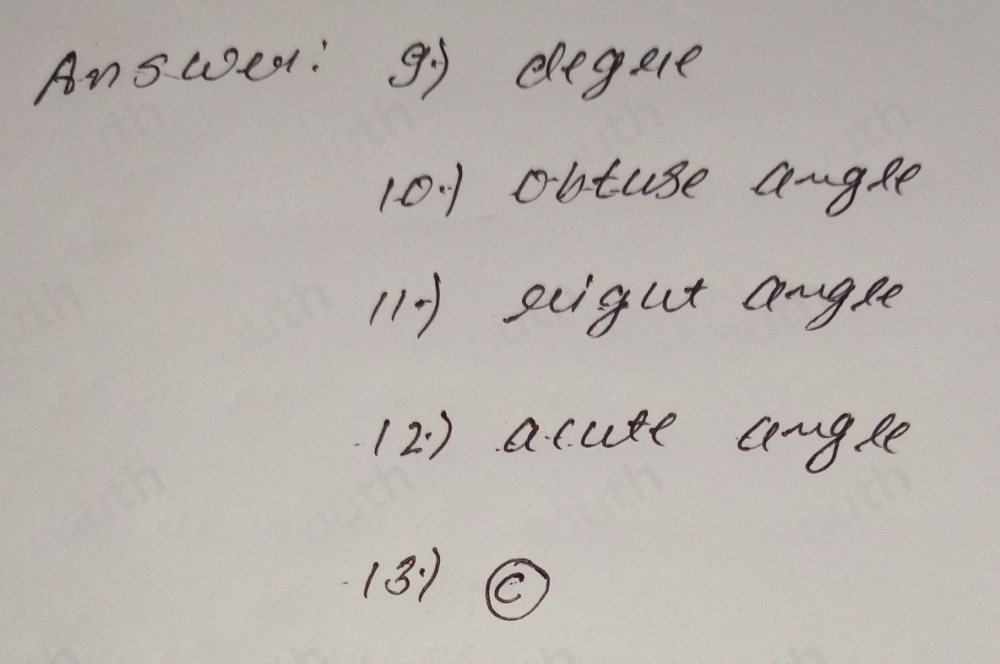 Answer: 9.) degree
10.) obtuse angle
11.) right angle
12.) acute angle
13.) C